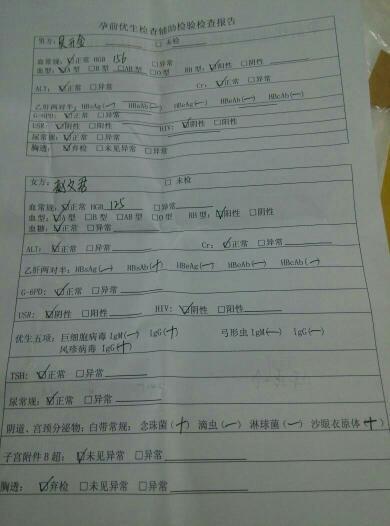 孕前优生检查辅助检验检查报告
男方： □ 未检
血常规：☑正常 HGB 156 □异常
血型：☑A型 □B型 □AB型 □O型 RH型：☑阳性 □阴性
ALT：☑正常 □异常 Cr：☑正常 □异常
乙肝两对半：HBsAg(—) HBsAb(—) HBeAg(—) HBeAb(—) HBcAb(—)
G-6PD：☑正常 □异常
USR：☑阴性 □阳性 HIV：☑阴性 □阳性
尿常规：☑正常 □异常
胸透：☑弃检 □未见异常 □异常
女方：赵文君 □ 未检
血常规：☑正常 HGB 125 □异常
血型：☑A型 □B型 □AB型 □O型 RH型：☑阳性 □阴性
血糖：☑正常 □异常
ALT：☑正常 □异常 Cr：☑正常 □异常
乙肝两对半：HBsAg(—) HBsAb(+) HBeAg(—) HBeAb(—) HBcAb(—)
G-6PD：☑正常 □异常
USR：☑阴性 □阳性 HIV：☑阴性 □阳性
优生五项：巨细胞病毒 IgM(—) IgG(+) 弓形虫 IgM(—) IgG(—)
风疹病毒 IgG(+)
TSH：☑正常 □异常
尿常规：☑正常 □异常
阴道、宫颈分泌物：白带常规：念珠菌(+) 滴虫(—) 淋球菌(—) 沙眼衣原体(+)
子宫附件B超：☑未见异常 □异常
胸透：☑弃检 □未见异常 □异常